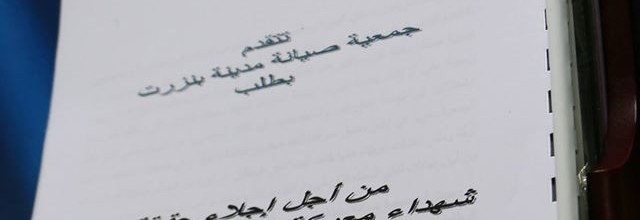 تتقدم
جمعية صيانة مدينة بنزرت
بطلب
من أجل إجلاء
شهداء